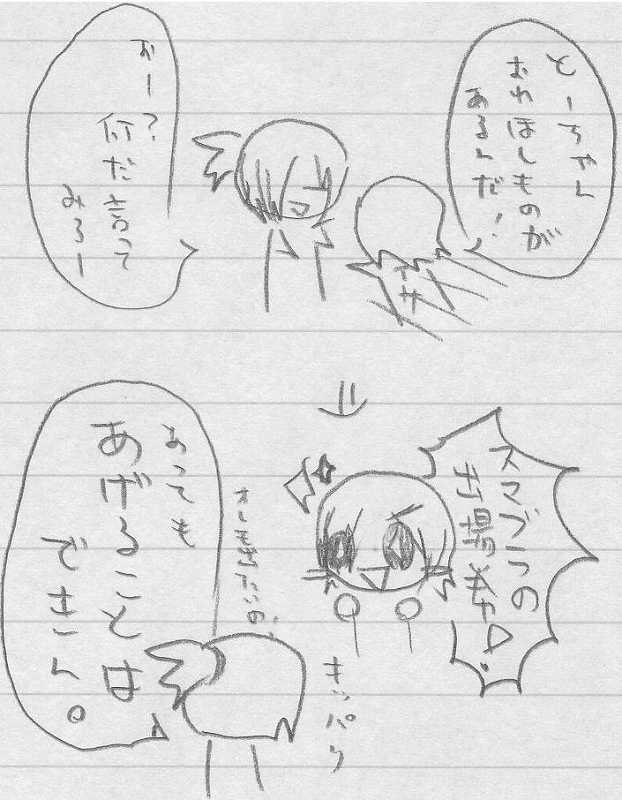 とーちゃん
おれほしものが
あるんだ!
おー?
何だ言って
みろー
イサ
スマブラの
出場券!
オレも出たいの。
あっても
あげることは
できん。
キッパリ